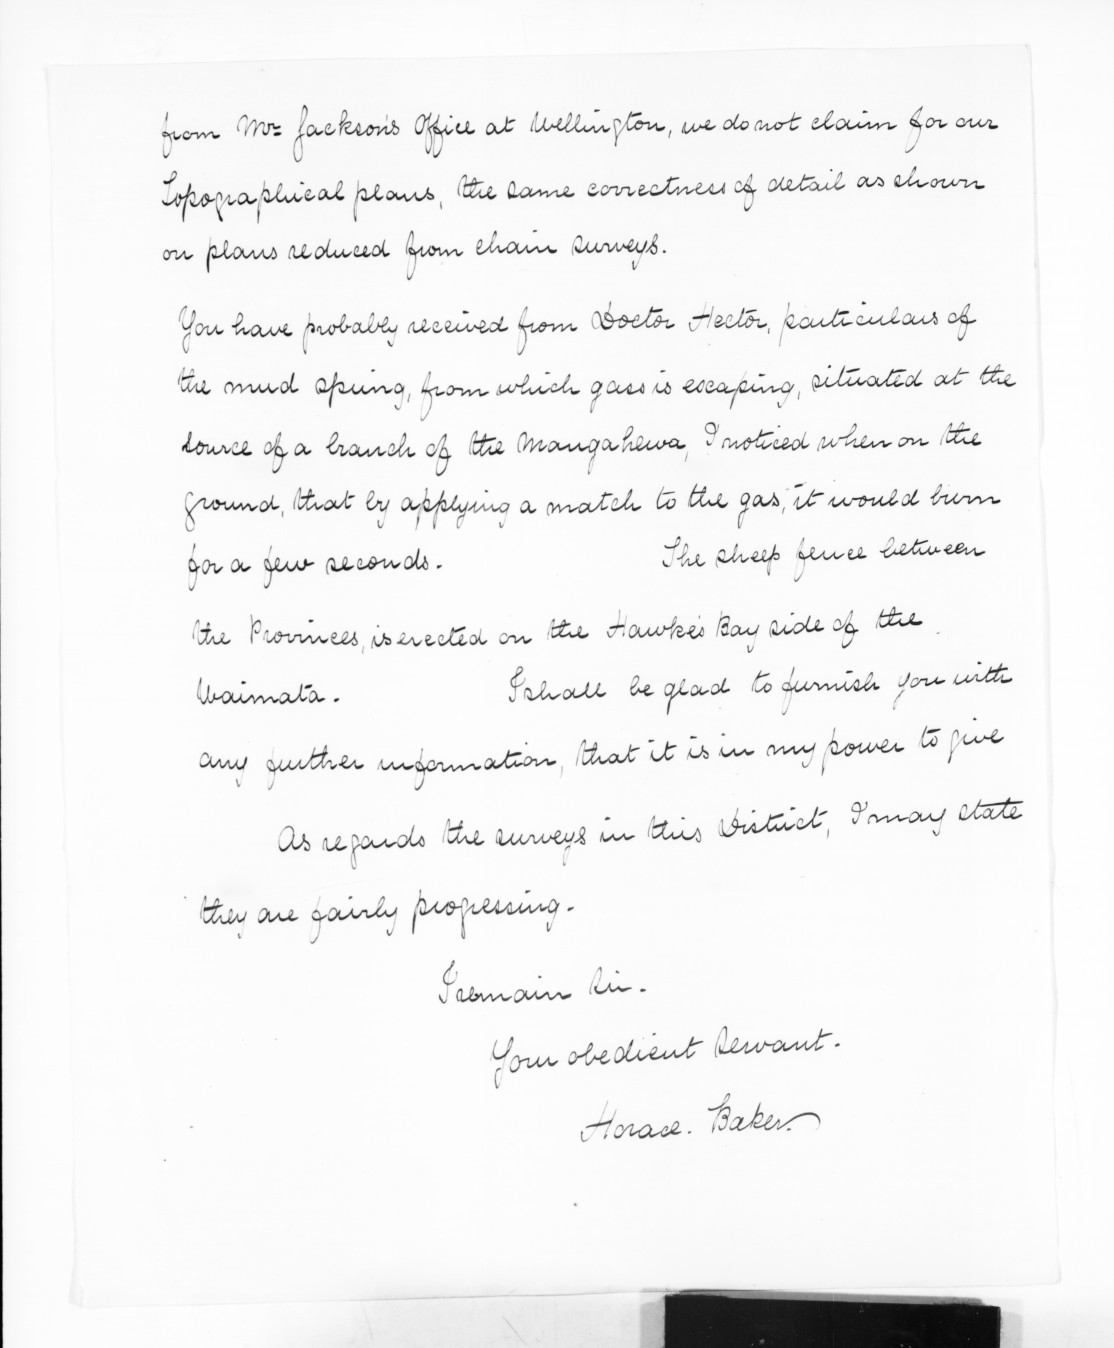 from Mr Jackson's Office at Wellington, we do not claim for our
Topographical plans, the same correctness of detail as shown
on plans reduced from chain surveys.
You have probably received from Doctor Hector, particulars of
the mud spring, from which gass is escaping, situated at the
source of a branch of the Mangahewa, I noticed when on the
ground, that by applying a match to the gas, it would burn
for a few seconds. The sheep fence between
the Provinces, is erected on the Hawke's Bay side of the
Waimata. I shall be glad to furnish you with
any further information, that it is in my power to give
As regards the surveys in this District, I may state
they are fairly progressing.
I remain Sir.
Your obedient Servant.
Horace. Baker.